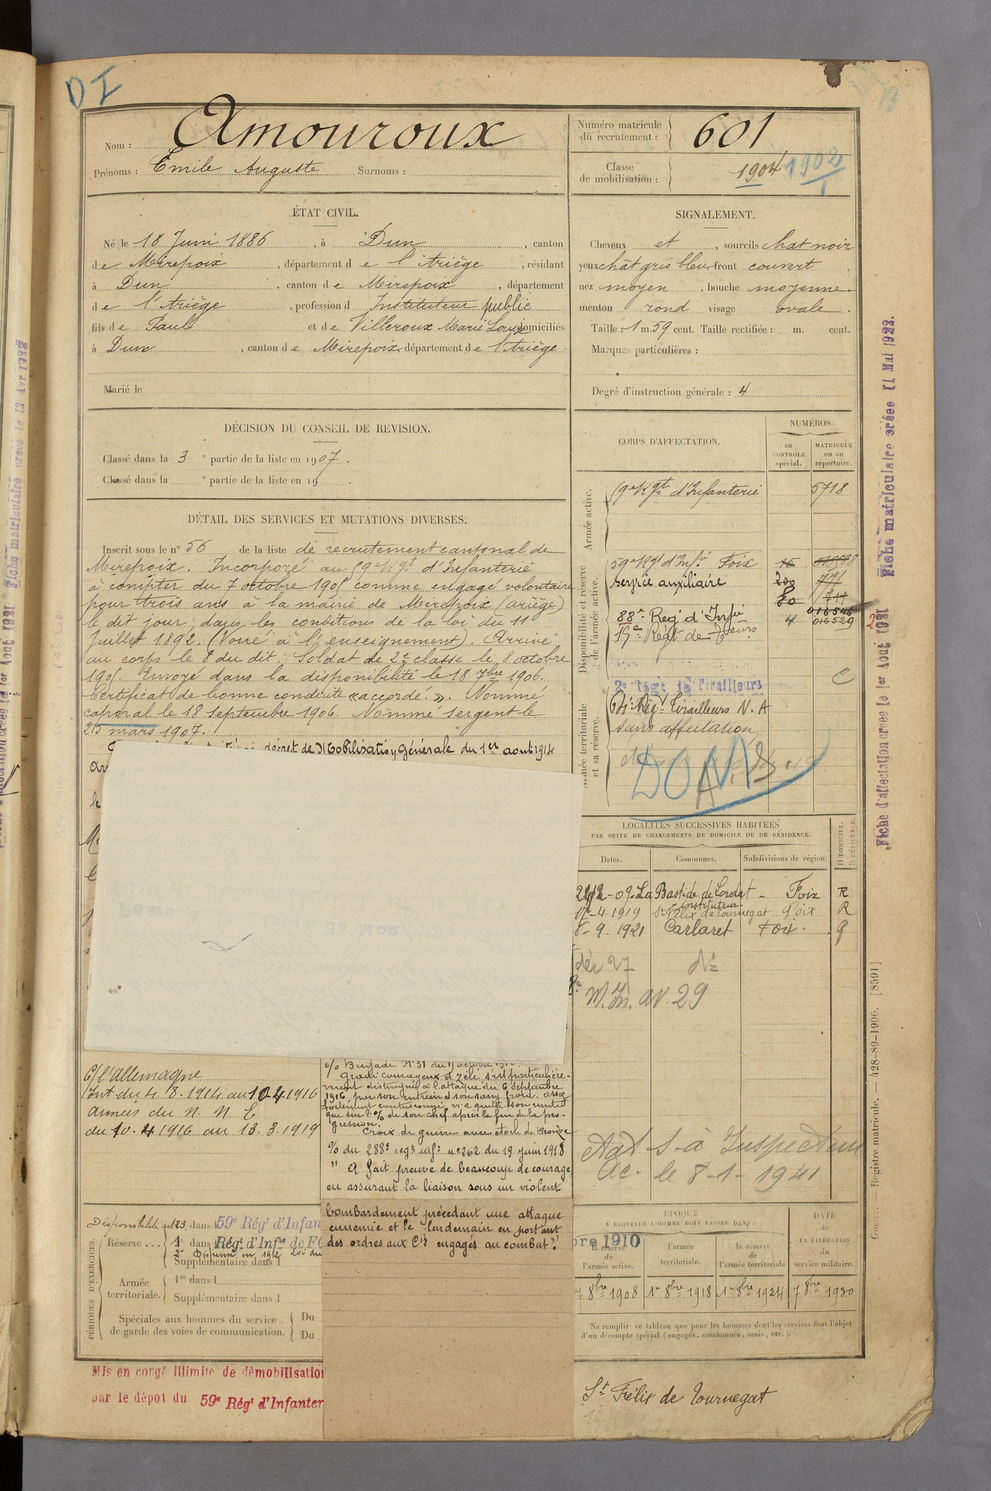 DI
Nom : Amouroux
Prénoms : Emile Auguste Surnoms :
Numéro matricule du recrutement : 601
Classe de mobilisation : 1904 1902
ÉTAT CIVIL.
Né le 18 Juin 1886, à Dun, canton
de Mirepoix, département de l'Ariège, résidant
à Dun, canton de Mirepoix, département
de l'Ariège, profession d Instituteur public
fils de Paul et de Villeroux Marie Louise domiciliés
à Dun, canton de Mirepoix, département de l'Ariège
Marié le
SIGNALEMENT.
Cheveux et, sourcils chat noir
yeux chât gris bleu front couvert
nez moyen, bouche moyenne.
menton rond visage ovale.
Taille 1 m. 59 cent. Taille rectifiée : m. cent.
Marques particulières :
Degré d'instruction générale : 4
DÉCISION DU CONSEIL DE REVISION.
Classé dans la 3e partie de la liste en 1907.
Classé dans la e partie de la liste en 19
DÉTAIL DES SERVICES ET MUTATIONS DIVERSES.
Inscrit sous le n° 56 de la liste de recrutement cantonal de
Mirepoix. Incorporé au 59e Rgt d'Infanterie
à compter du 7 octobre 1905 comme engagé volontaire
pour trois ans à la mairie de Mirepoix (ariège)
le dit jour, dans les conditions de la loi du 11
Juillet 1892. (Voué à l'enseignement). Arrivé
au corps le 8 du dit. Soldat de 2e classe le 8 octobre
1905. Envoyé dans la disponibilité le 18 7bre 1906.
Certificat de bonne conduite "accordé". Nommé
caporal le 18 septembre 1906. Nommé sergent le
25 mars 1907.
décret de Mobilisation Générale du 1er aout 1914
CORPS D'AFFECTATION.
NUMÉROS
au CONTRÔLE spécial.
MATRICULE ou au répertoire.
Armée active.
59e Rgt d'Infanterie 5718
Disponibilité et réserve de l'armée active.
59e Rgt d'Infie Foix 15
service auxiliaire
80
88e Reg d'Infie 016526
17e Régt de 4 016529
Armée territoriale et sa réserve.
2e Régt de Tirailleurs
64e Reg. Tirailleurs N. A
Sans affectation
DOM
LOCALITÉS SUCCESSIVES HABITÉES
PAR SUITE DE CHANGEMENTS DE DOMICILE OU DE RÉSIDENCE.
Dates. Communes. Subdivisions de région. D DOMICILE. R RÉSIDENCE.
-09. La Bastide de Lordat - Foix R
instituteur
-4-1919 St Félix de Tournegat Foix R
-9-1921 Carlaret Foix.
déc 27
av. 29
C/ l'Allemagne
Int. du 4.8.1914 au 10.4.1916
Armées du N. N. E
du 10.4.1916 au 13.3.1919
o/o Brigade N° 31 du octobre
Gradé courageux et zélé, s'est particulière-
ment distingué à l'attaque du 6 septembre
1916, par son entrain et son sang froid. assez
fortement contusionné n'a quitté son unité
que sur l'o/ de son chef après la fin de la pro-
gression.
Croix de guerre avec étoile de Bronze
o/o du 288e regt inf. n° 262 du 19 juin 1918
" A fait preuve de beaucoup de courage
en assurant la liaison sous un violent
bombardement précédant une attaque
ennemie et le lendemain en portant
des ordres aux Cies engagés au combat."
Aff S à Inspection
Ac. le 8-1-1941
PÉRIODES D'EXERCICES.
Disponibilité dans 59e Régt d'Infan
Réserve.... 1re dans Régt d'Infie de FO
2e
Supplémentaire dans l
Armée territoriale. 1re dans l
Supplémentaire dans l
Spéciales aux hommes du service de garde des voies de communication. Du
Du
ÉPOQUE
À LAQUELLE L'HOMME DOIT PASSER DANS :
DATE DE LA LIBÉRATION du service militaire.
bre 1910
la réserve de l'armée active.
l'armée territoriale.
la réserve de l'armée territoriale
8bre 1908 1er 8bre 1918 1er 8bre 1924 7 8bre 1930
Ne remplir ce tableau que pour les hommes dont les services font l'objet
d'un décompte spécial (engagés, condamnés, omis, etc.).
Mis en congé illimité de démobilisation
par le dépot du 59e Régt d'Infanter
St Félix de Tournegat
Fiche matriculaire créée 11 Mai 1922.
Fiche d'affectation créée le 1er Août 1931
Registre matricule. — 428-89-1906. [8591]